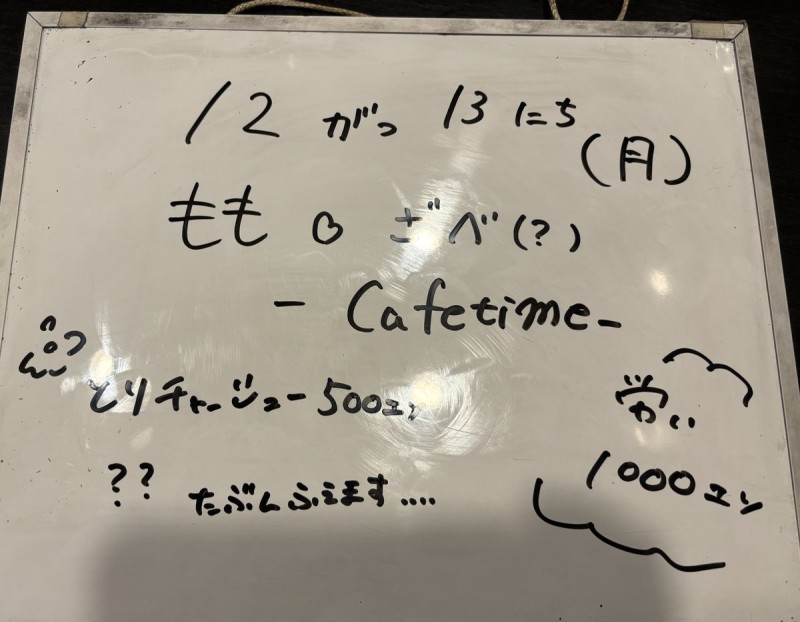 12 がつ 13 にち
(月)
もも の ざべ(?)
- Cafetime-
チャージュー 500エン
?? たぶんふえます....
1000エン